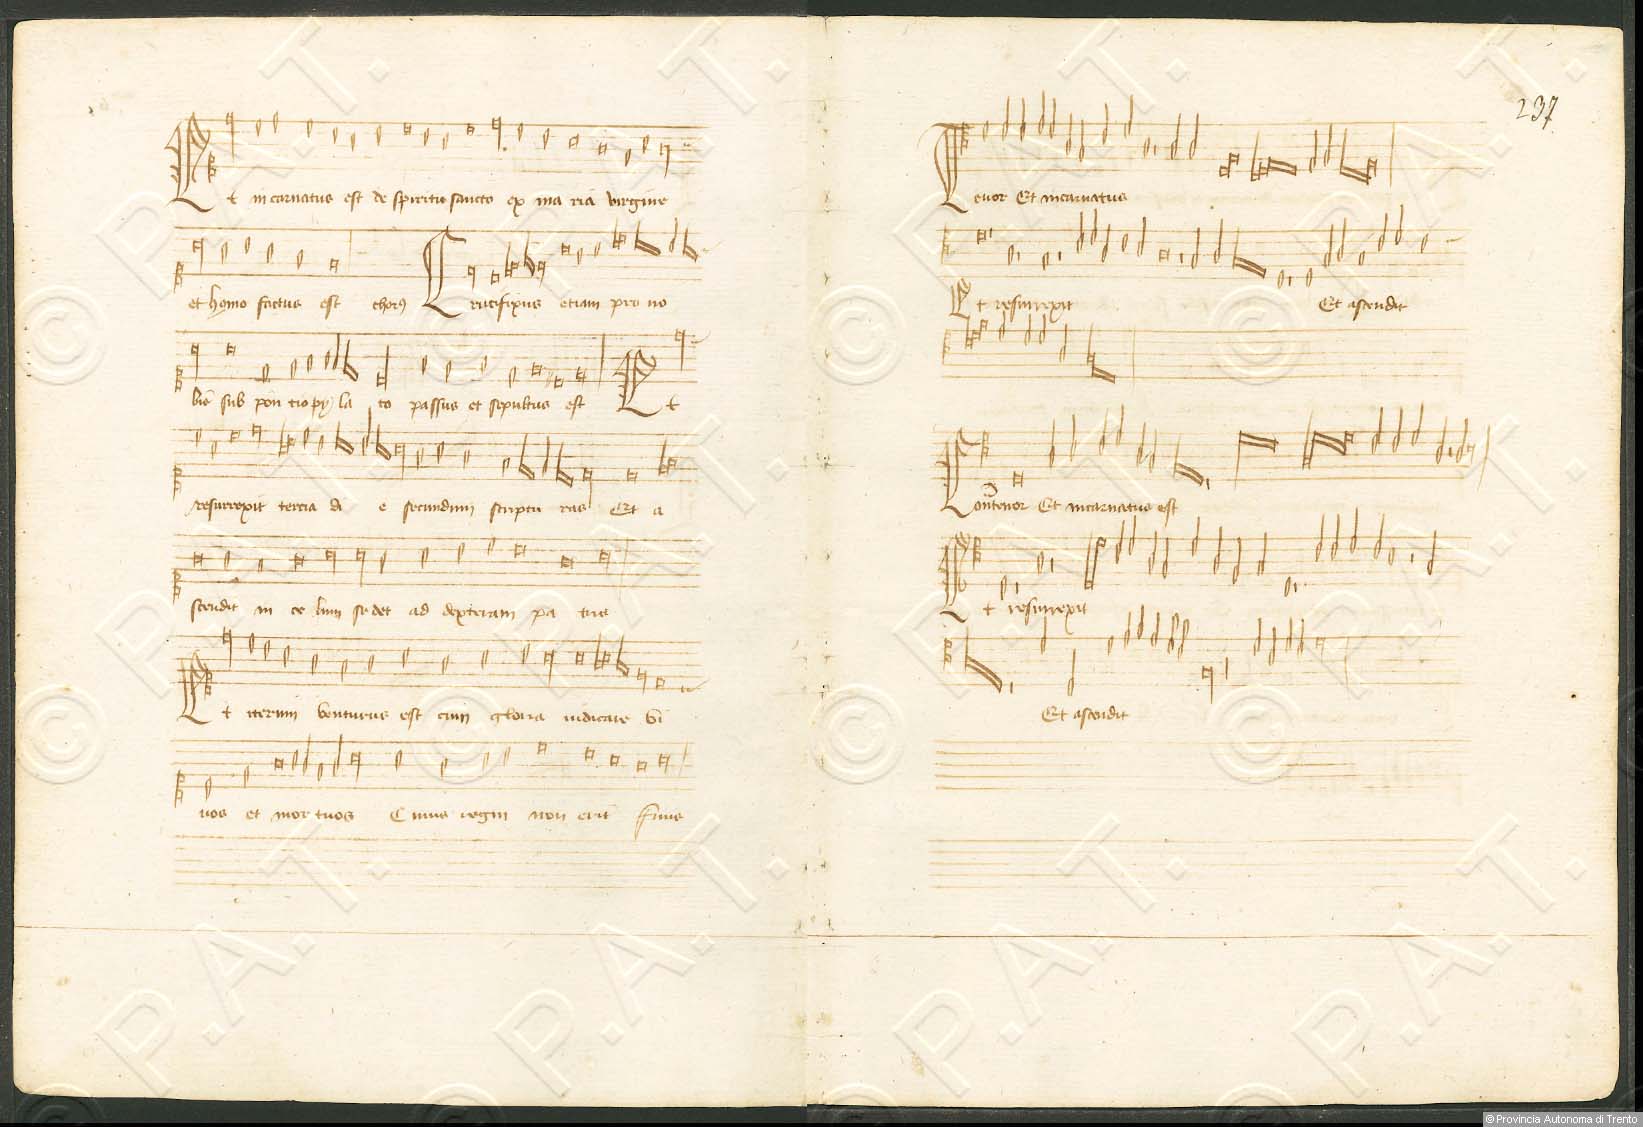 Et incarnatus est de spiritu sancto ex ma ria virgine
et homo factus est chorus Crucifixus etiam pro no
bis sub pon tio py la to passus et sepultus est Et
resurrexit tercia di e secundum scriptu ras Et a
scendit in ce lum sedet ad dexteram pa tris
Et iterum venturus est cum gloria iudicare vi
vos et mor tuos Cuius regni non erit finis
237
Tenor Et incarnatus
Et resurrexit Et ascendit
Contratenor Et incarnatus est
Et resurrexit
Et ascendit
© P.A.T.
© Provincia Autonoma di Trento